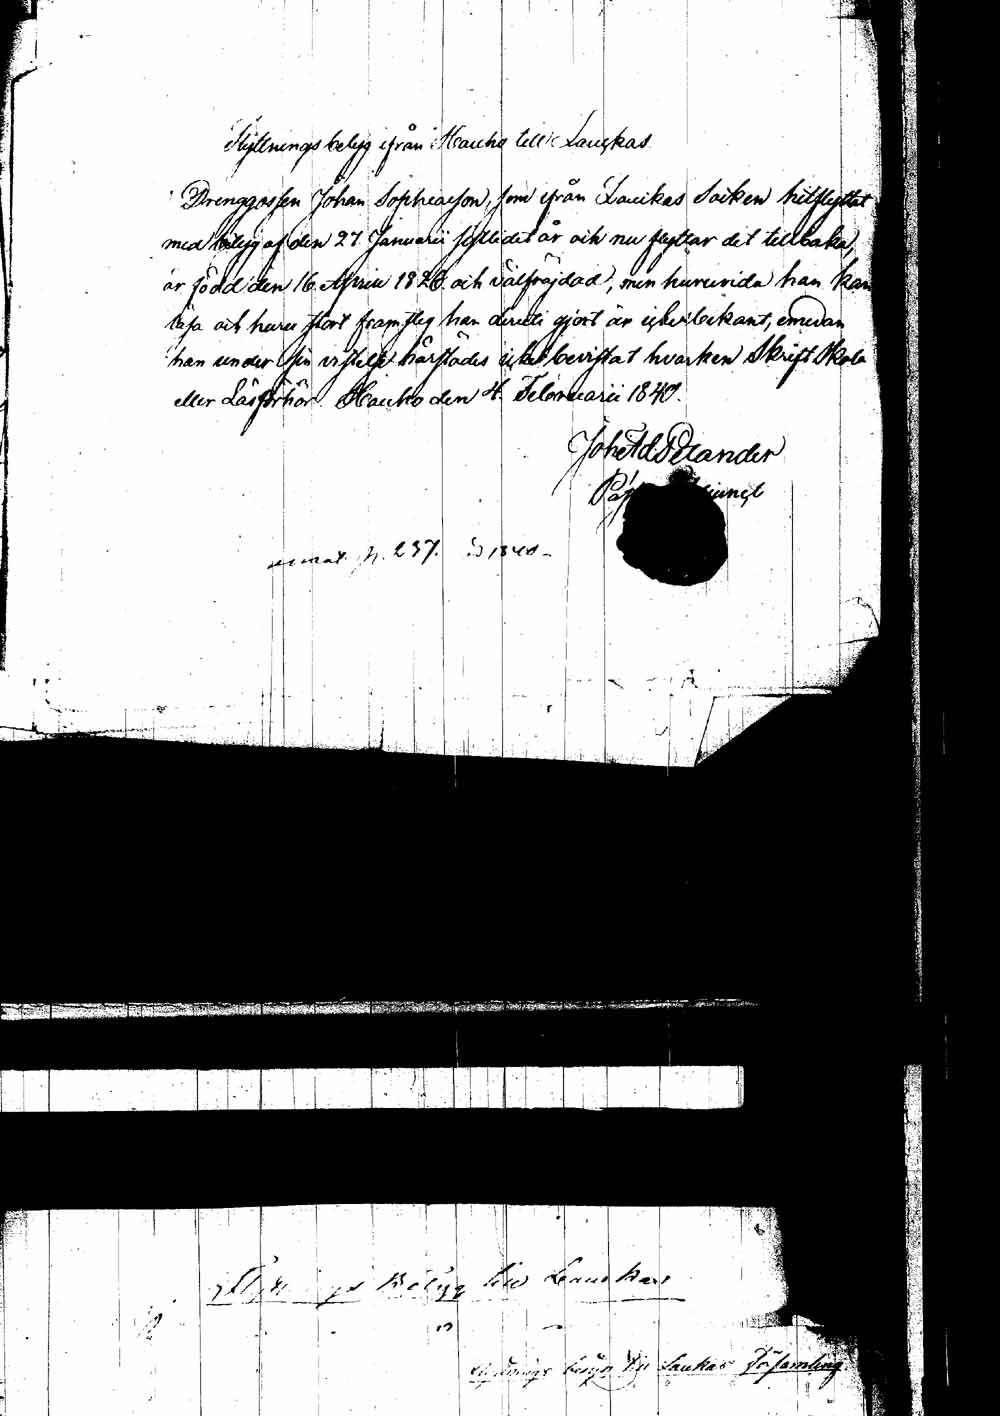 Flyttningsbetyg ifrån Hauho till Laukas
Drenggossen Johan Sophiæson, som ifrån Laukas Socken hitflyttat
med betyg af den 27 Januarii sistledit år och nu flyttar dit tillbaka,
är född den 16 Aprill 1826 och välfrejdad, men huruvida han kan
läsa och huru stort framsteg han deruti gjort är icke bekant, emedan
han under sin vistelse härstädes icke bevistat hvarken Skrift Skola
eller Läsförhör. Hauho den 4 Februarii 1840.
Joh Ad Pelander
p. 237. 1840
Betyg till Laukas
betyg till Laukas Församling